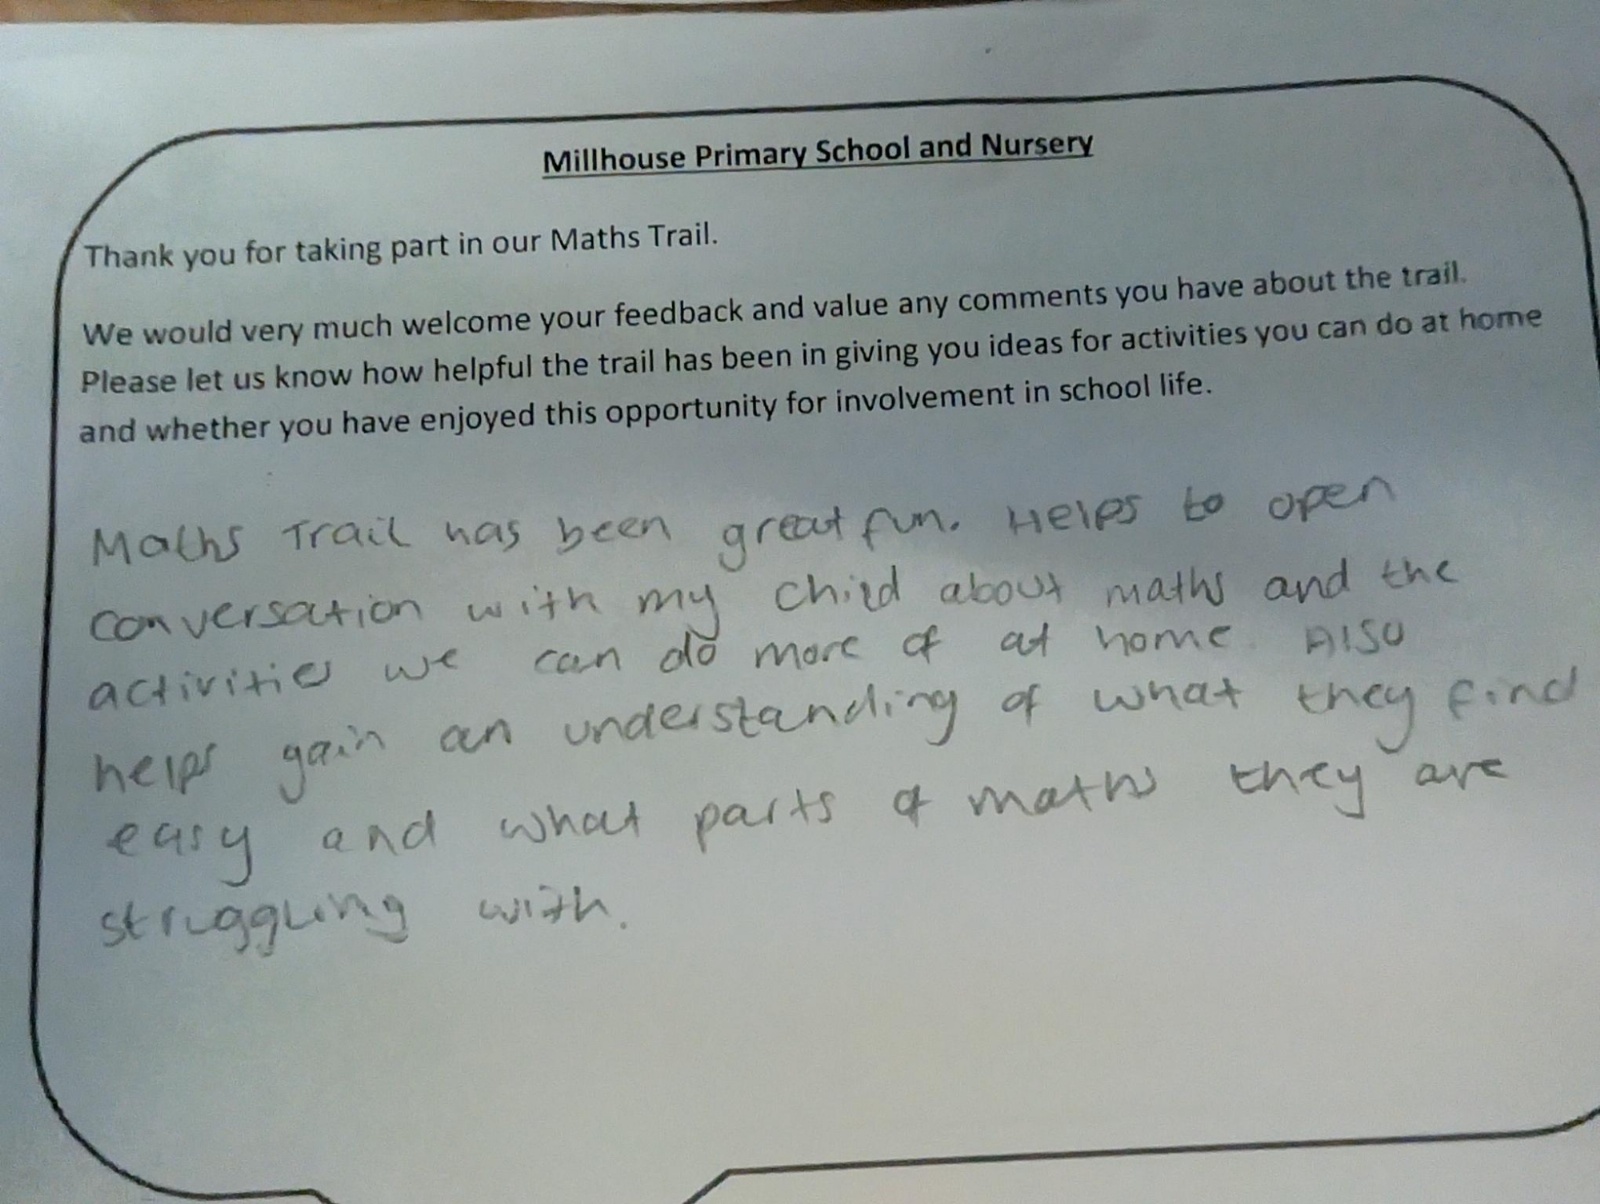 Millhouse Primary School and Nursery
Thank you for taking part in our Maths Trail.
We would very much welcome your feedback and value any comments you have about the trail.
Please let us know how helpful the trail has been in giving you ideas for activities you can do at home
and whether you have enjoyed this opportunity for involvement in school life.
Maths Trail has been great fun. Helps to open
conversation with my child about maths and the
activities we can do more of at home. Also
helps gain an understanding of what they find
easy and what parts of maths they are
struggling with.